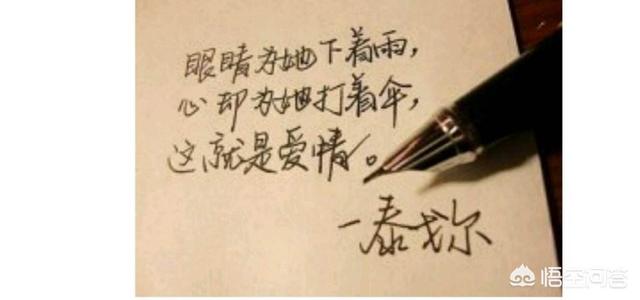 眼睛为她下着雨，
心却为她打着伞，
这就是爱情。
—泰戈尔
悟空问答